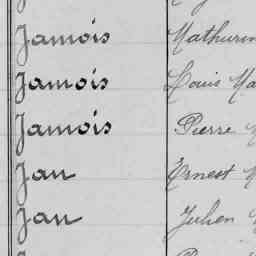 Jamois Mathurin
Jamois Louis Ma
Jamois Pierre
Jan Ernest
Jan Julien